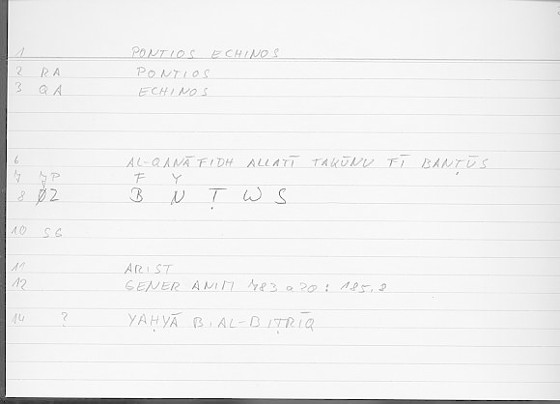 1 PONTIOS ECHINOS
2 RA PONTIOS
3 QA ECHINOS
6 AL-QANĀFIDH ALLATĪ TAKŪNU FĪ BANṬŪS
7 JP F Y
8 ØZ B N Ṭ W S
10 SG
11 ARIST
12 GENER ANIM 783 a 20 : 185.2
14 ? YAḤYĀ B. AL-BIṬRĪQ